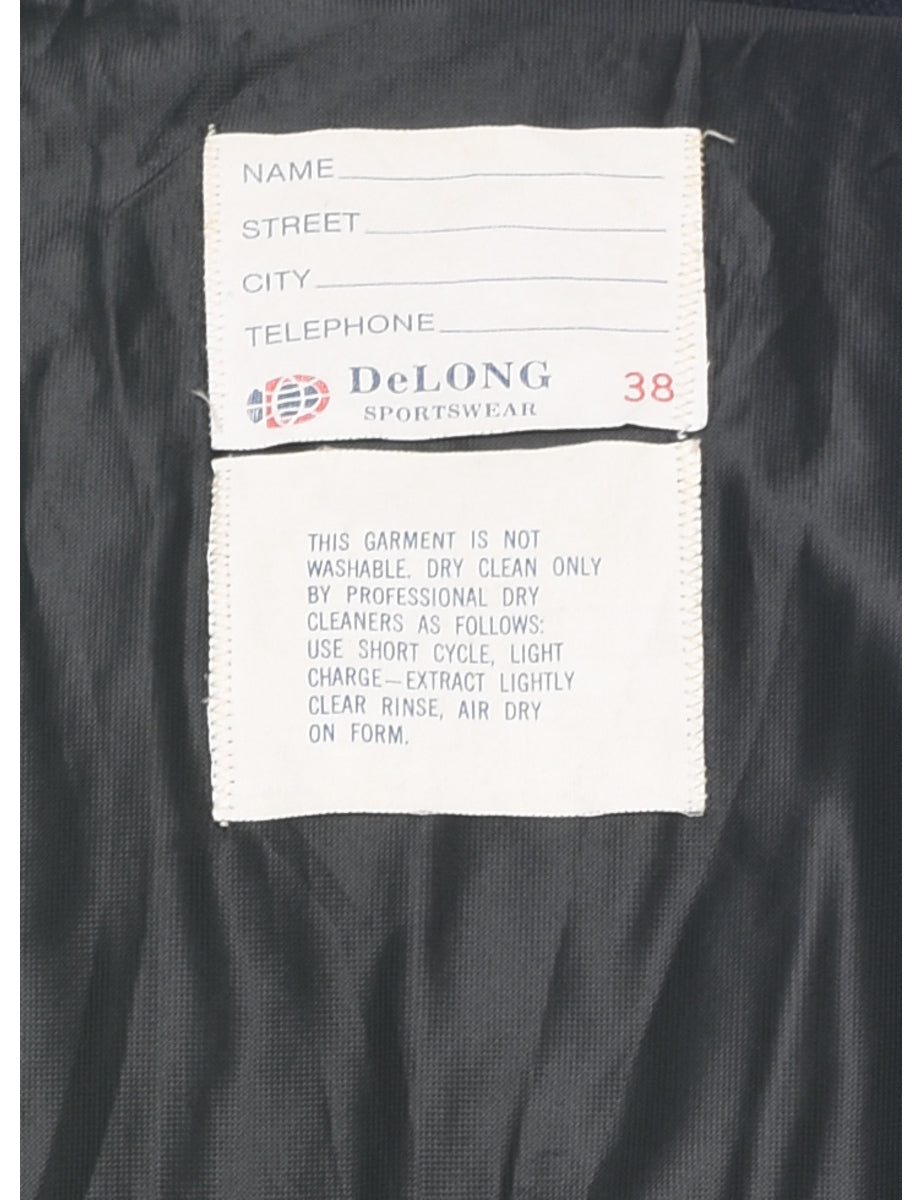 NAME
STREET
CITY
TELEPHONE
DeLONG 38
SPORTSWEAR
THIS GARMENT IS NOT
WASHABLE. DRY CLEAN ONLY
BY PROFESSIONAL DRY
CLEANERS AS FOLLOWS:
USE SHORT CYCLE, LIGHT
CHARGE—EXTRACT LIGHTLY
CLEAR RINSE, AIR DRY
ON FORM.